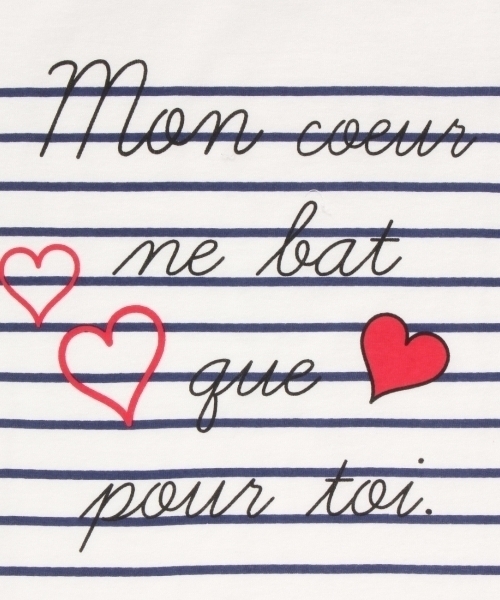 Mon coeur
ne bat
que
pour toi.